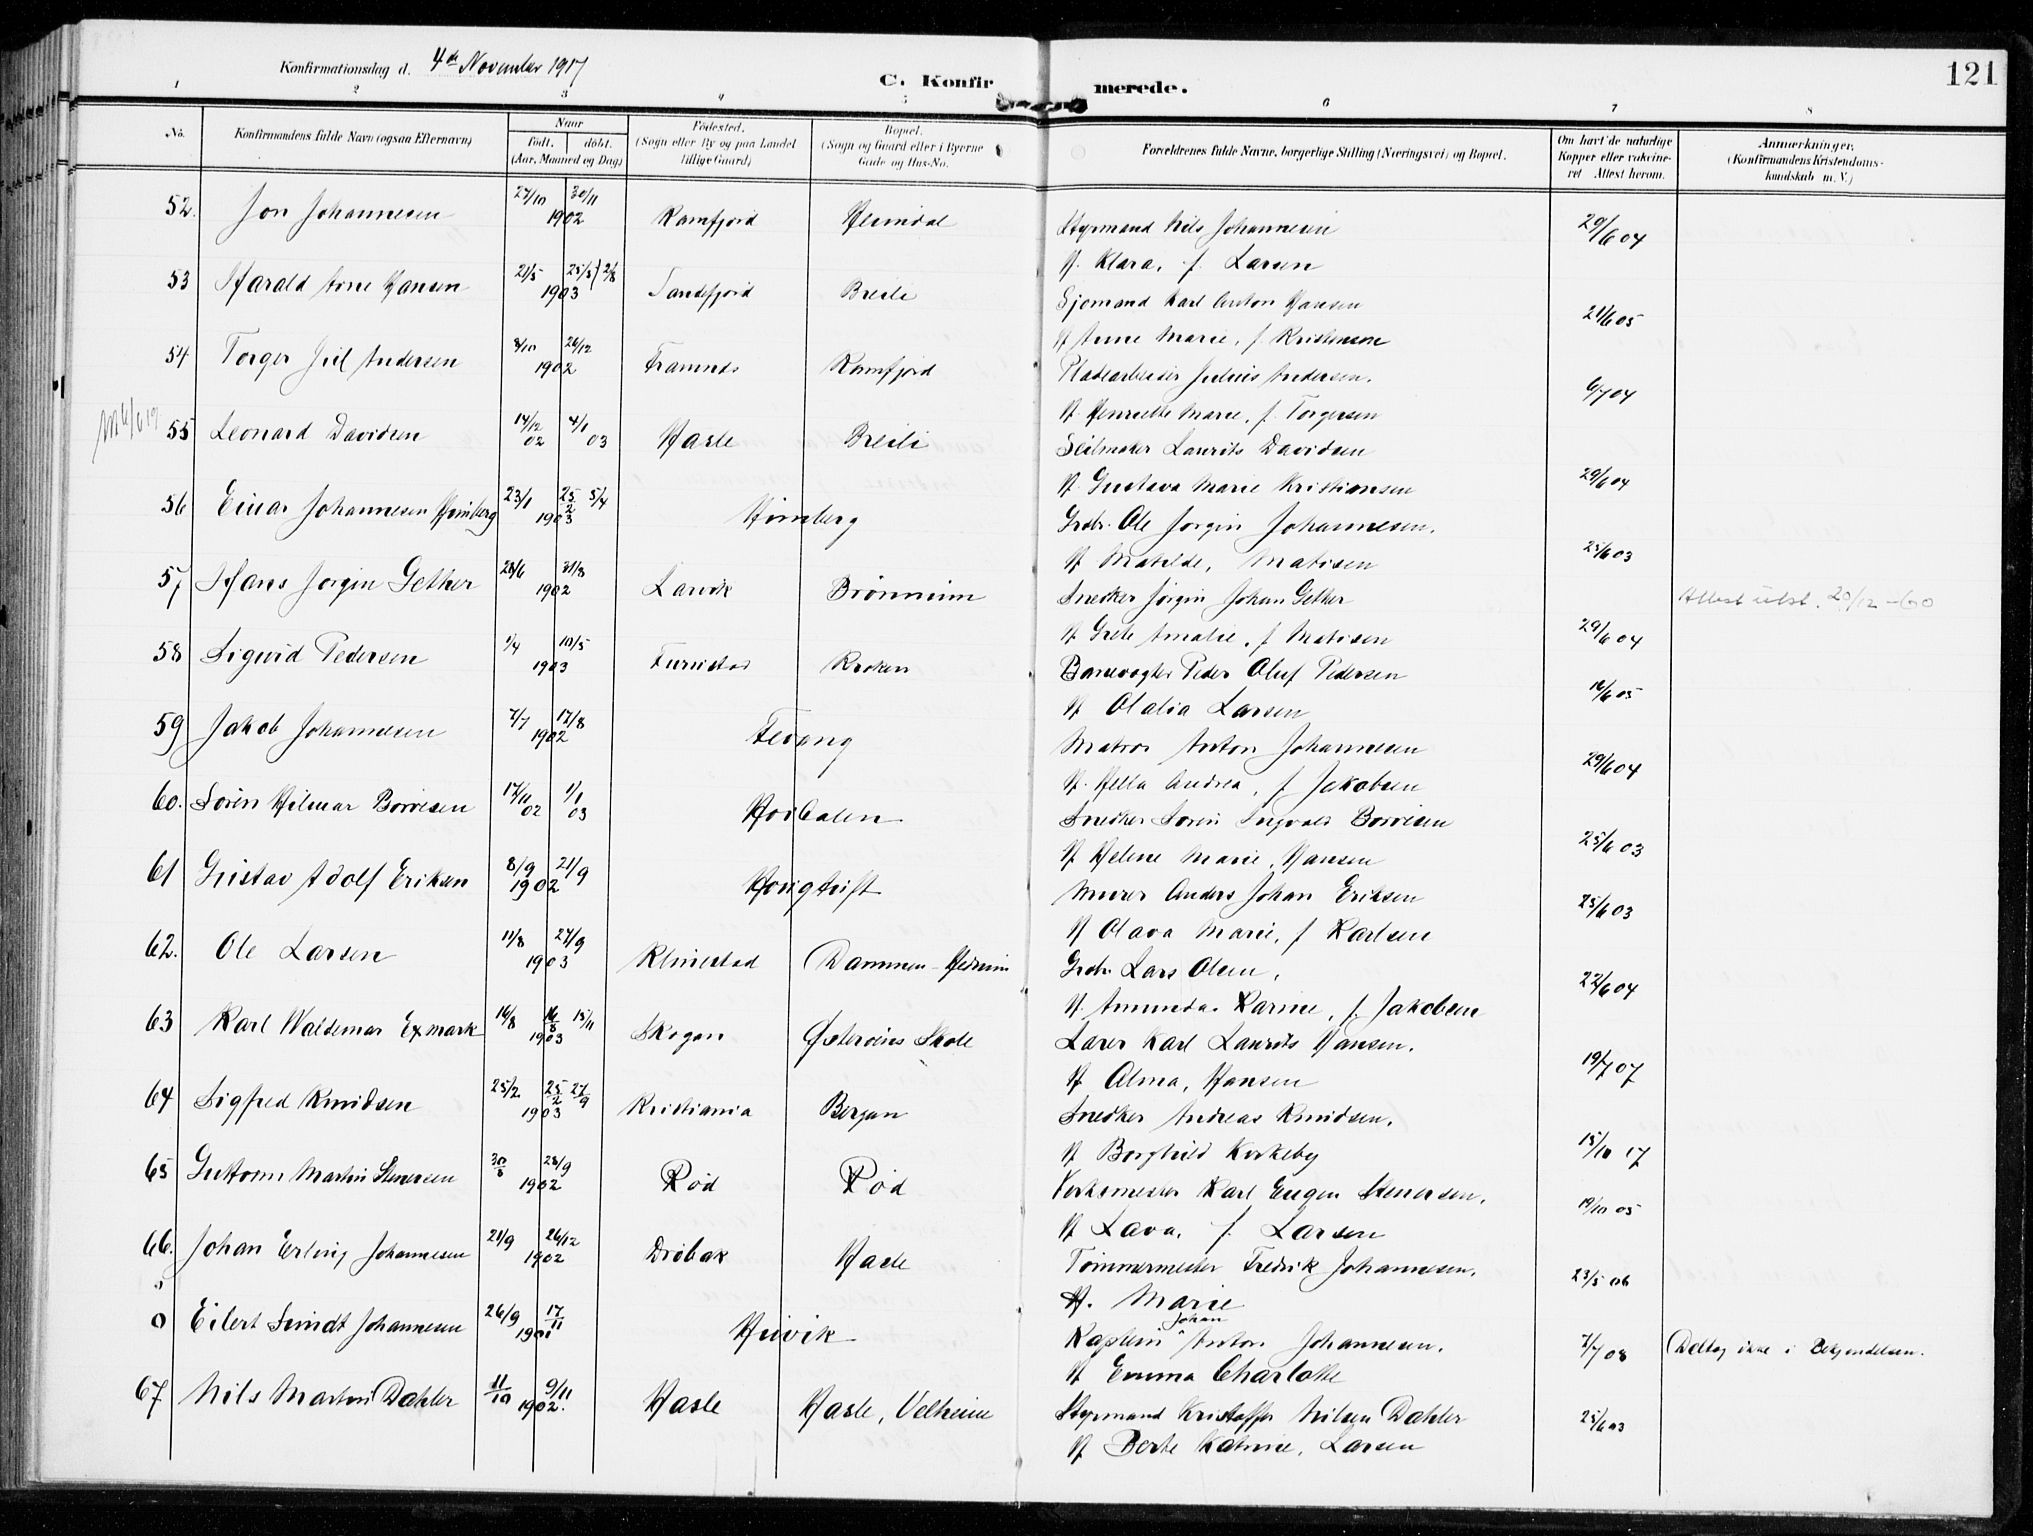 Konfirmationsdag d. 4de November 1917
C. Konfirmerede.
121
1 2 3 4 5 6 7 8
No. Konfirmandens fulde Navn (ogsaa Efternavn) Naar født. døbt. (Aar, Maaned og Dag) Fødested. (Sogn eller By og paa Landet tillige Gaard) Bopæl. (Sogn og Gaard eller i Byerne Gade og Hus-No. Forældrenes fulde Navne, borgerlige Stilling (Næringsvei) og Bopæl. Om havt de naturlige Kopper eller vakcineret Attest herom. Anmærkninger, (Konfirmandens Kristendomskundskab m. V.)
52. Jon Johannesen 27/10 30/11 1902 Ramfjord Heimdal Styrmand Nils Johannesen 29/6 04
H. Klara, f. Larsen
53 Harald Arne Hansen 21/5 25/5 2/8 1903 Sandefjord Breili Sjømand Karl Anton Hansen 21/6 05
H Anne Marie, f. Kristensen
54 Torger Juel Andersen 8/10 26/12 1902 Framnes Ramfjord Pladearbeider Julius Andersen. 6/7 04
H. Henriette Marie, f. Torgersen
55 Leonard Davidsen 14/12 02 4/1 03 Hasle Breili Seilmaker Laurits Davidsen 29/6 04
H. Gustava Marie Kristiansen
56 Einar Johannesen Himberg 23/1 25/2 5/4 1903 Himberg Grdbr. Ole Jørgin Johannesen. 25/6 03
H Matilde, Matisen
57 Hans Jørgin Gether 28/6 31/8 1902 Larvik Brønnum Snedker Jørgin Johan Gether 29/6 04 Attest utst. 20/12-60
H Grete Amalie, f Matisen
58 Sigurd Pedersen 1/4 10/5 1903 Furustad Kroken Banevogter Peder Oluf Pedersen 16/6 05
H Olalia Larsen
59 Jakob Johannesen 7/7 17/8 1902 Tevang Matros Anton Johannesen 29/6 04
H. Hella Andrea, f Jakobsen
60. Søren Hilmar Børresen 17/11 02 1/1 03 Snedker Søren Ingvald Børresen 25/6 03
H Helene Marie, Hansen
61 Gustav Adolf Eriksen 8/9 21/9 1902 Murer Anders Johan Eriksen 25/6 03
H Olava Marie, f Karlsen
62. Ole Larsen 11/8 27/9 1903 Klinestad Dammen - Hedrum Grdbr Lars Olsen, 22/6 04
H. Amunda Karine, f. Jakobsen
63 Karl Waldemar Exmark 16/8 16/8 15/11 1903 Skogan Østerøens Skole Lærer Karl Laurits Hansen. 19/7 07
H Alma, Hansen
64 Sigfred Knudsen 25/2 25/2 27/9 1903 Kristiania Bergan Snedker Andreas Knudsen. 15/10 17
H Borghild Kirkeby
65 Guttorm Martin Stenersen 30/8 28/9 1902 Rød Rød Verksmester Karl Eugen Stenersen. 19/10 05
H Lava, f. Larsen
66. Johan Erling Johannesen 21/9 26/12 1902 Drøbak Hasle Tømmermester Fredrik Johannesen. 23/5 06
H. Marie
0 Eilert Smidt Johannesen 26/9 17/11 1901 Huvik Kaptein Johan Anton Johannesen. 7/7 08 (Deltog ikke i Bekjendelsen.
H Emma Charlotte
67 Nils Martin Dahler 11/10 9/11 1902. Hasle Hasle, Velheim Styrmand Kristoffer Nilsen Dahler 25/6 03
H Berte Katrine, Larsen